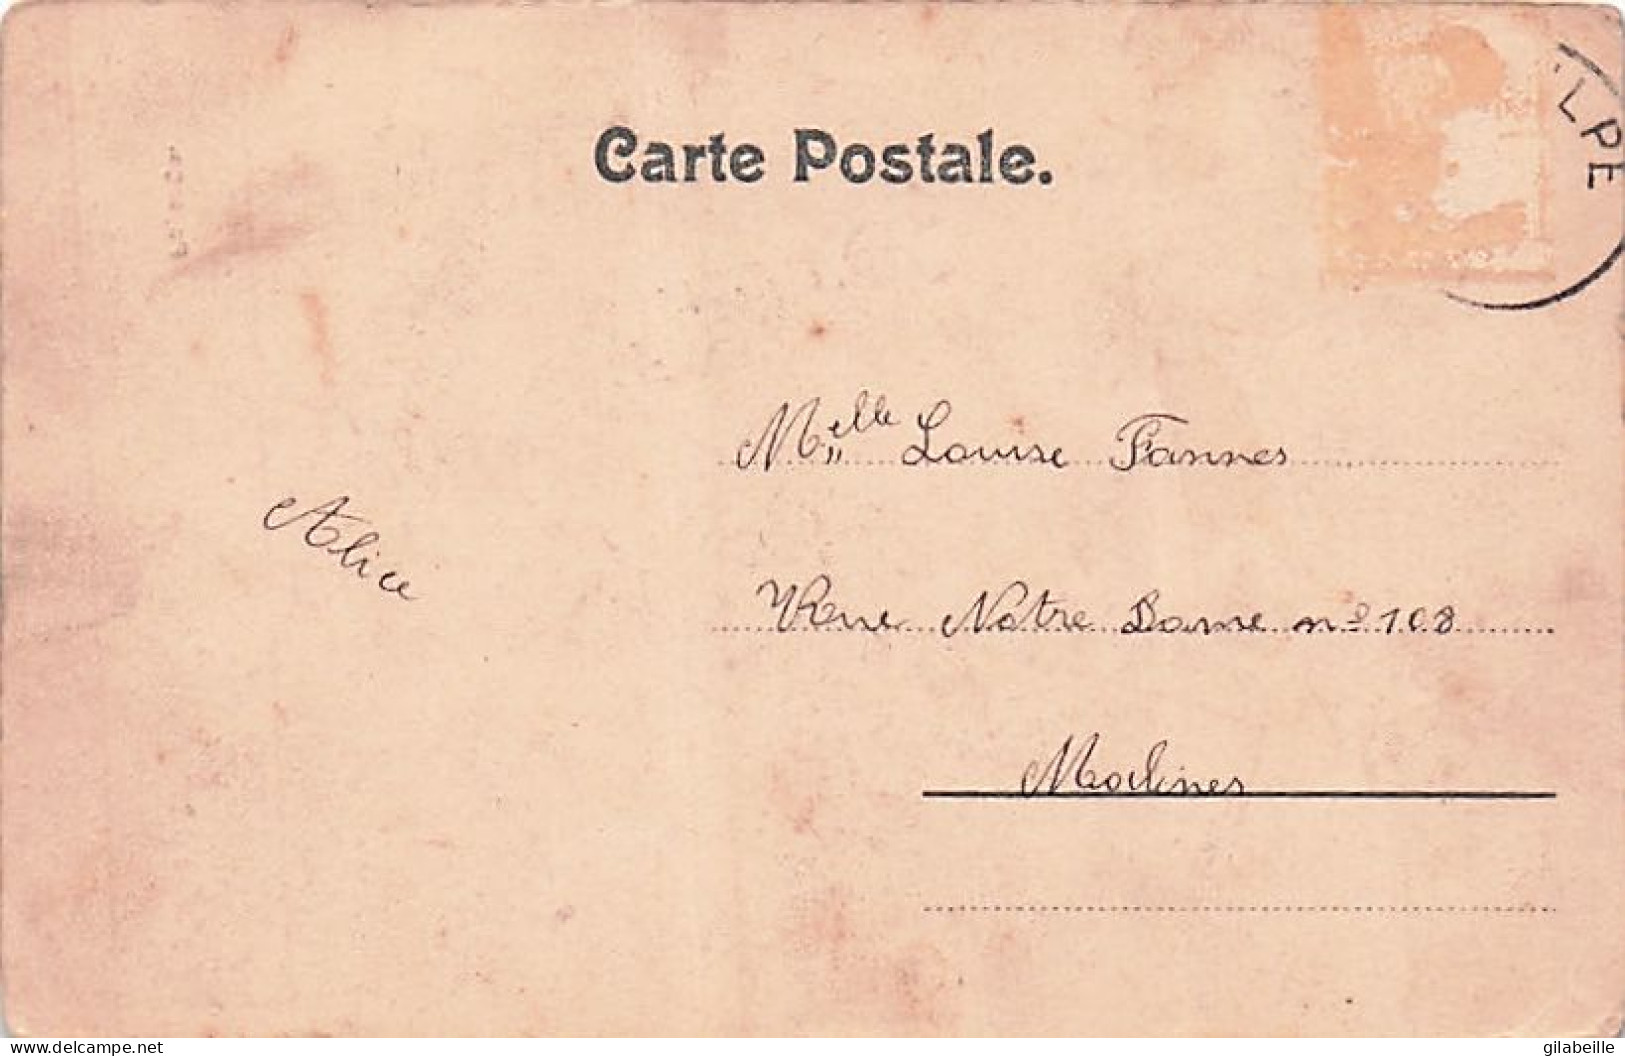 Carte Postale.
LPE
Melle Louise Fannes
Alice
Rue Notre Dame no 108
Malines
www.delcampe.net
gilabeille